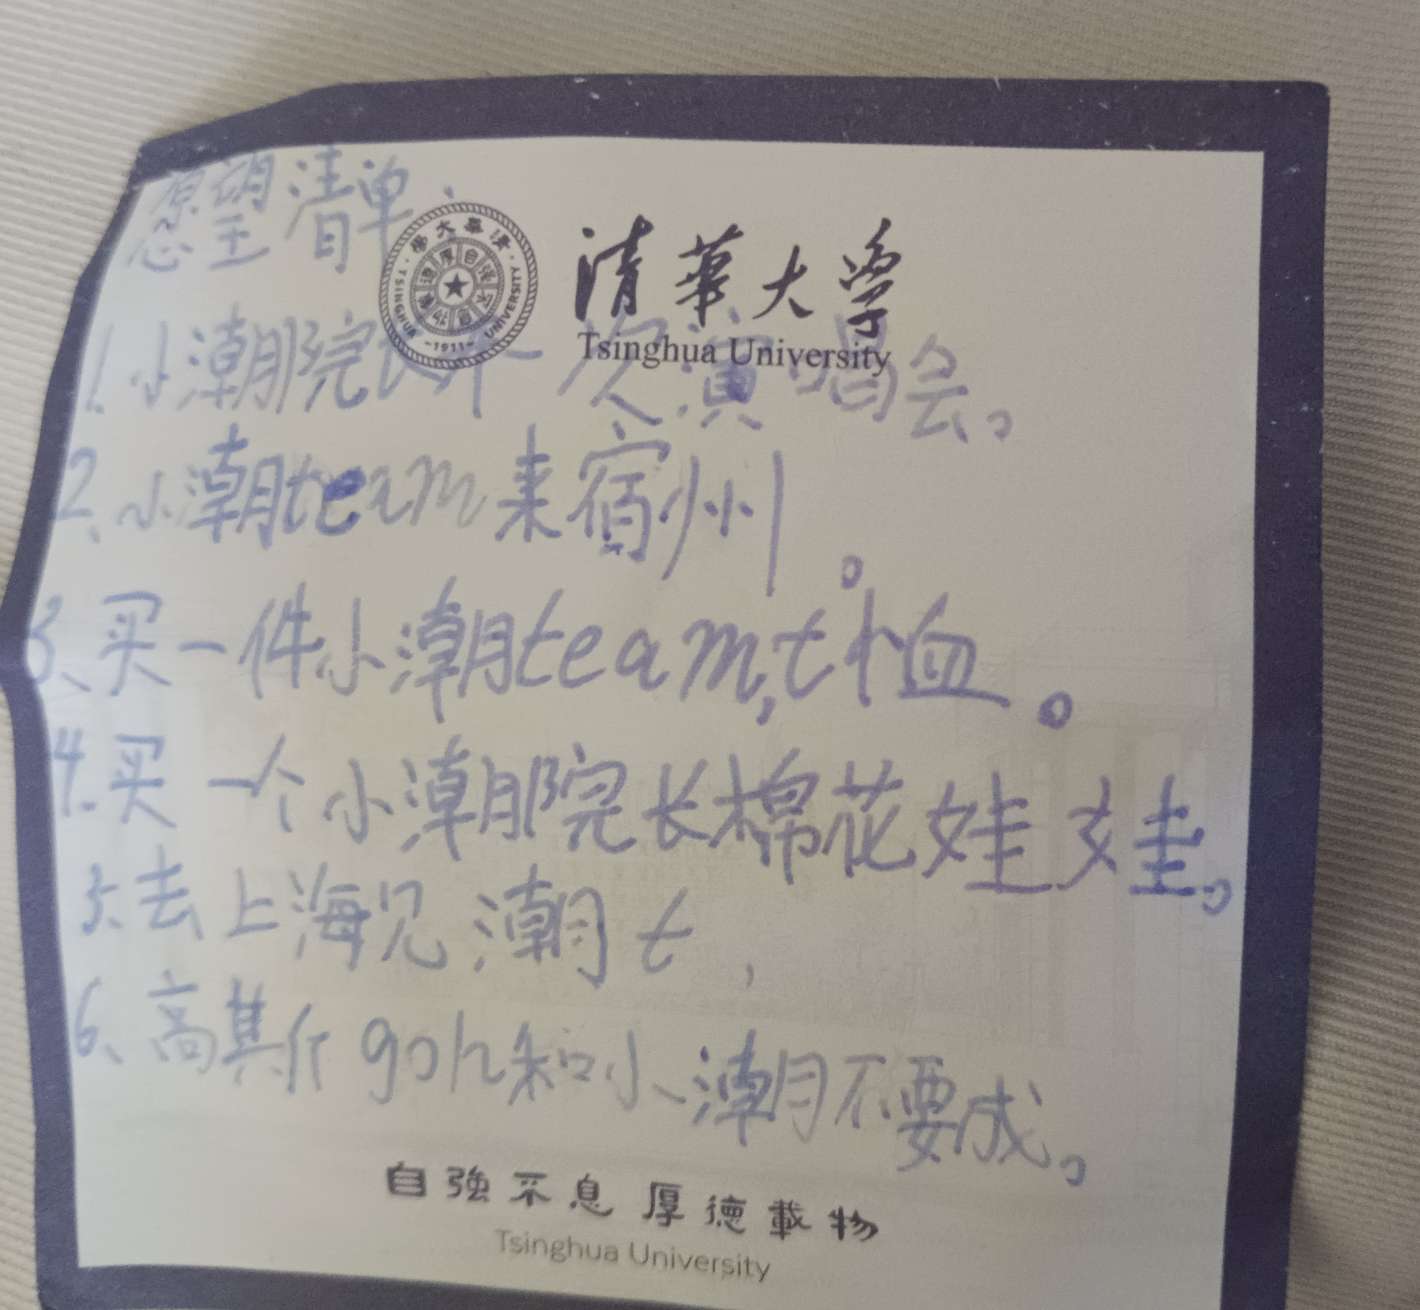 愿望清单:
清華大学
Tsinghua University
TSINGHUA UNIVERSITY
-1911-
1.小潮院长开一次演唱会。
2、小潮team来宿州。
3、买一件小潮team,t恤。
4.买一个小潮院长棉花娃娃。
5、去上海见潮t,
6、高斯goh和小潮不要成。
自強不息 厚德載物
Tsinghua University